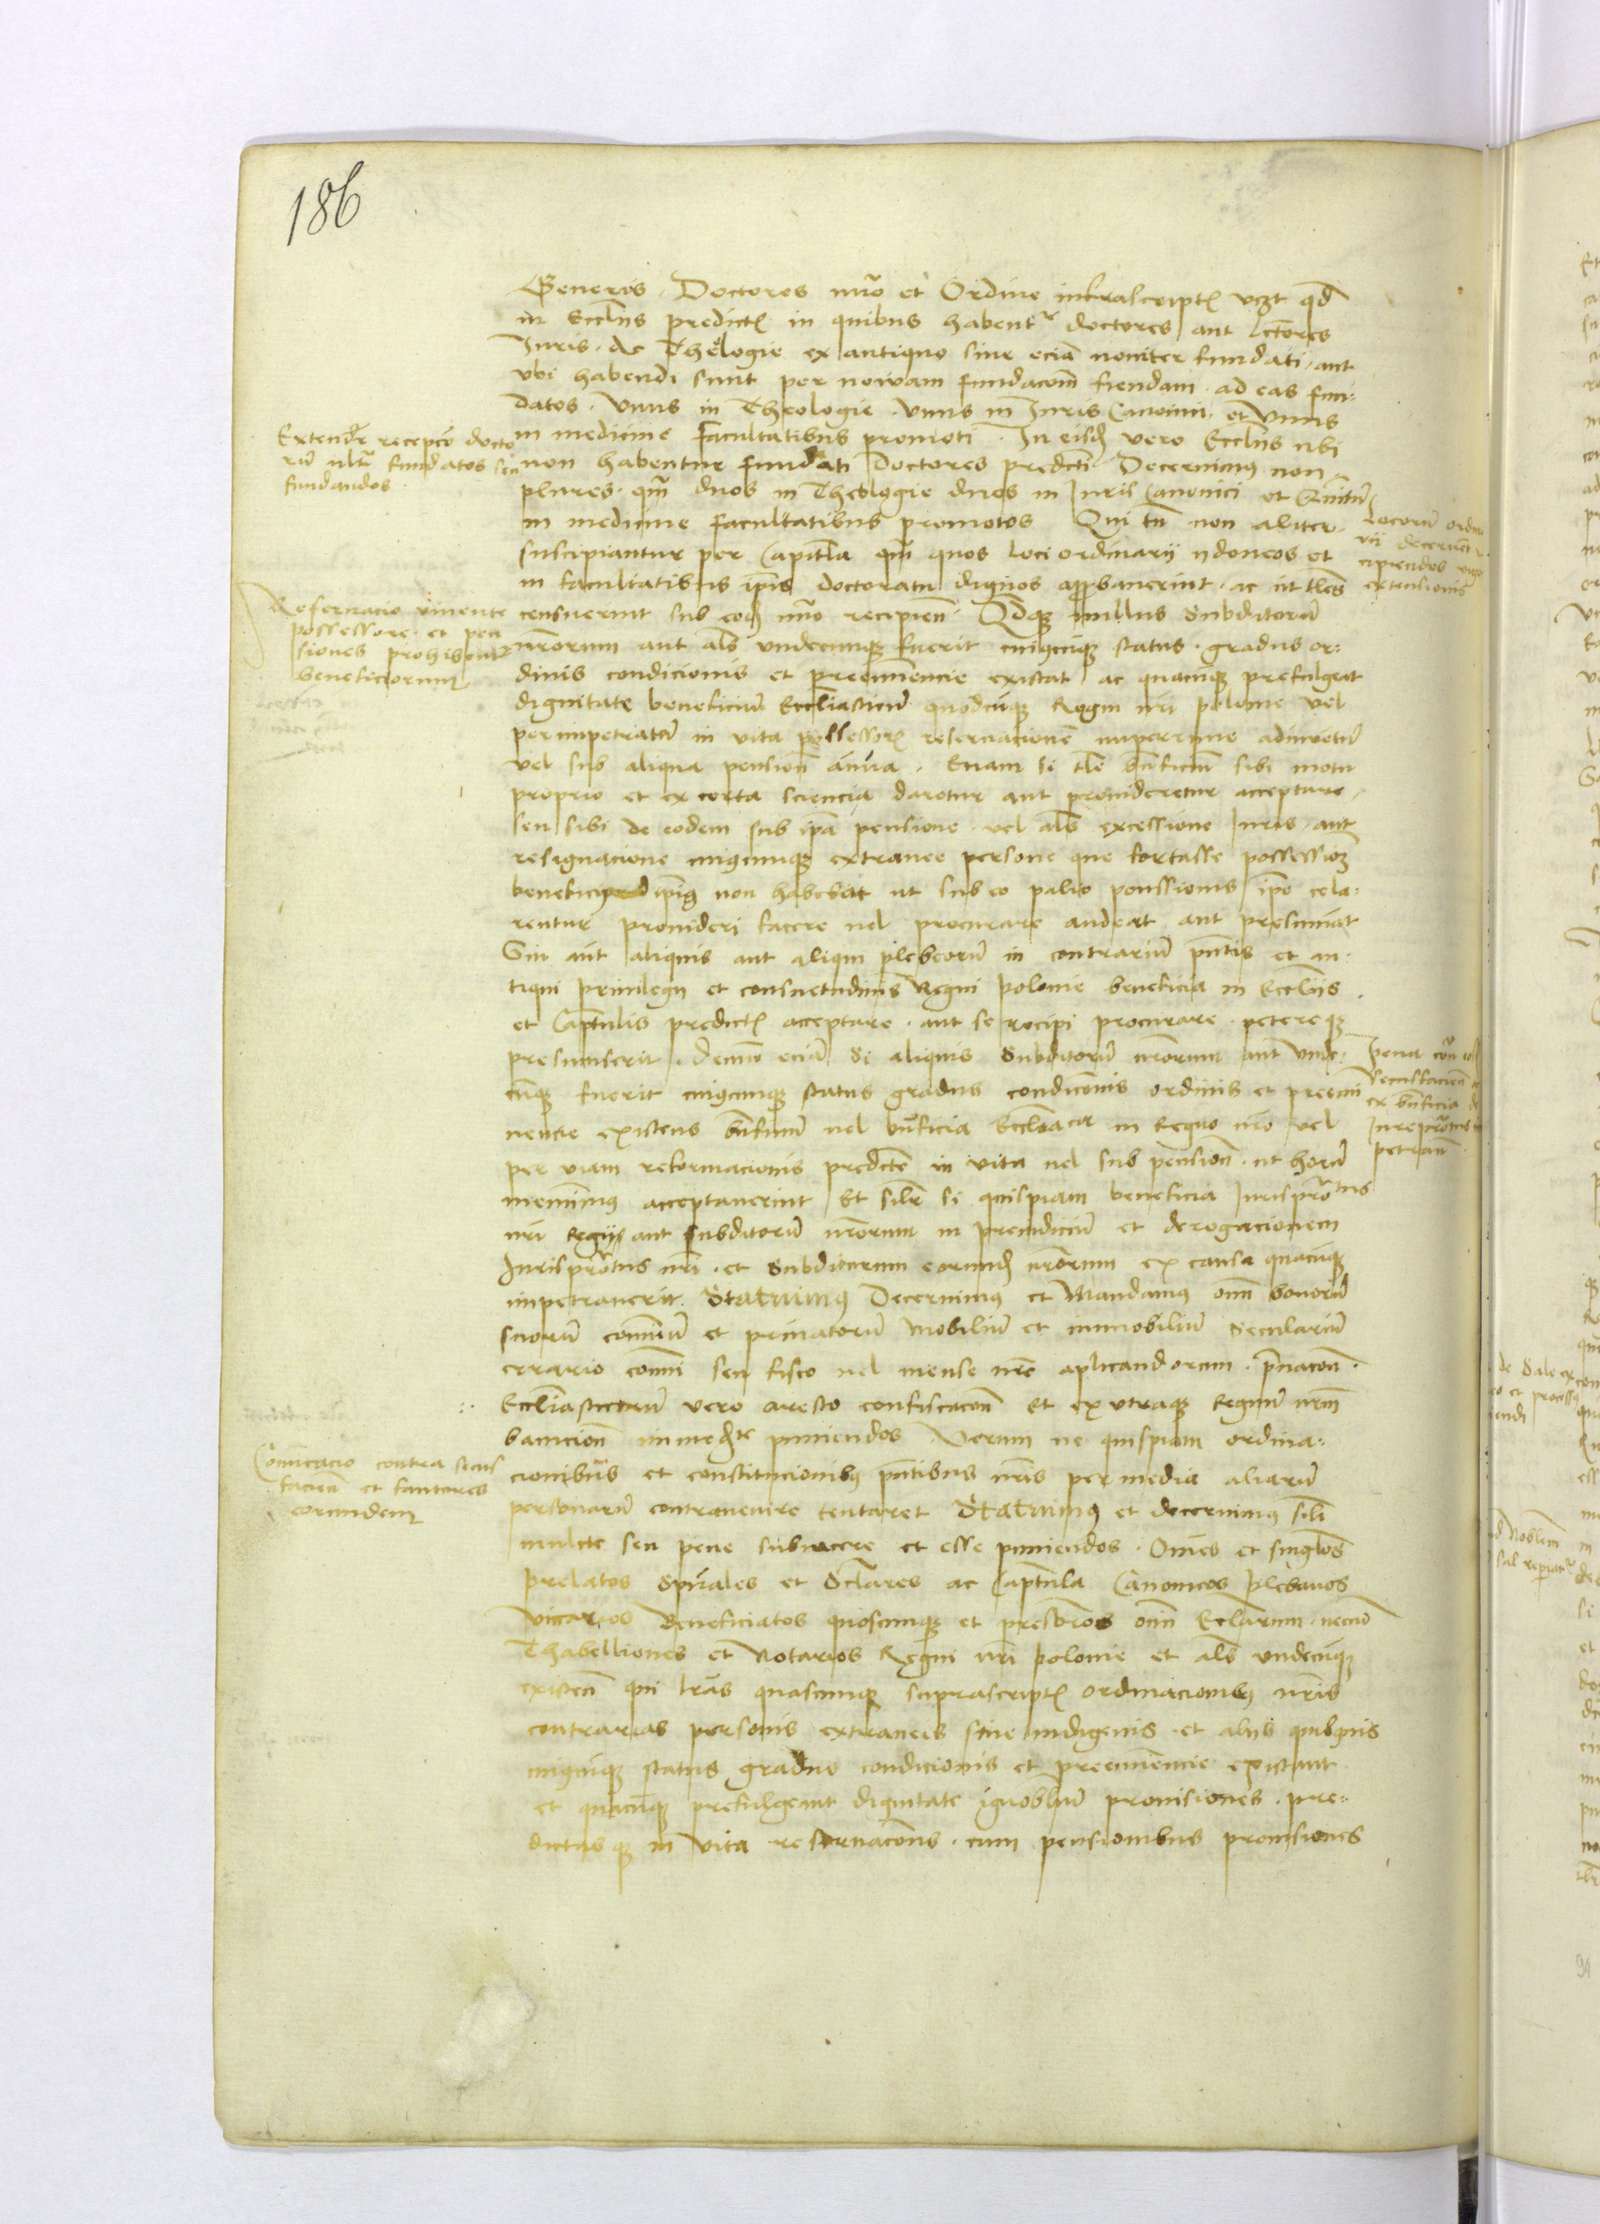 186
Generis Doctores mo͞ et Ordine infrascript̄ vczt qd
in Eccliis predict̄ in quibus habent doctores aut lectores
Juris ac Theologie ex antiquo siue eciā nouiter fundati aut
vbi habendi sunt per nouam fundacoēm fiendam ad eas fun:
datos vnus in Theologie vnus in Juris Canonici et vnus
in medicine facultatibus promoti In eisd vero Eccliis ubi
non habentur fundati Doctores predcti Decernimus non
plures qm duos in Theologie duos in Juris Canonici et
in medicine facultatibus promotos Qui tn non aliter
suscipiantur per Capitla qm quos loci ordinarij ydoneos et
in facultatibus ipis doctoratu dignos approbauerint ac ut tles
censuerint sub eod mo recipien Qdque nullus Subditorū
nrorum aut als vndecunque fuerit cuiuscunque status gradus or:
dinis condicionis et preeminencie existat ac quacunque prefulgeat
dignitate beneficiū Eccliasticū quodcūque Regni nri polonie vel
per impetratā in vita possessor reseruacionē nuperrime adinuetū
vel sub aliqua pension annua Etiam si tle bnficiū sibi motu
proprio et ex certa sciencia daretur aut prouideretur acceptare
seu sibi de eodem sub ipa pensione vel als ex cessione Juris aut
resignacione cuiuscunque extranee persone que fortasse possession
non habebat ut sub eo palio ipo cela:
rentur prouideri facere uel procurare audeat aut presumat
Sin aut aliquis aut aliqui plebeorū in contrariū pntis et an:
tiqui priuilegij et consuetudinis Regni polonie beneficia in Eccliis
et Captulis predict̄ acceptare aut se recipi procurare petereque
presumserit Demū eciā Si aliquis Subditorū nrorum aut vnde:
cūque fuerit cuiuscunque status gradus condicōnis ordinis et preemi
nencie existens bnficiū uel bnficia Eccliastica in Regno nro vel
per viam reseruacionis predcte in vita uel sub pension ut horū
meminimus acceptauerint Et silr si quispiam beneficia Jurisprotus
nri Regij aut subditorū nrorum in preiudiciū et derogacionem
Jurisprotus nri et Subditorum eorund nrorum ex causa quacūque
impetrauerit Statuimus Decernimus et Mandamus omn bonorū
suorū comuniū et priuatorū mobiliū et immobiliū Seculariū
errario comuni seu fisco uel mense nre aplicandorum priuacōn
Eccliasticorū vero aresto confiscacōn Et ex vtraque Regnū nrm
bannicion puniendos Verum ne quispiam ordina:
cionibus et constitucionibus pntibus nris per media aliarū
personarū contrauenire tentaret Statuimus et decernimus sili
mulcte seu pene subiacere et esse puniendos Omnes et singlos
prelatos Spuales et Sclares ac Captula Canonicos plebanos
Vicarios Beneficiatos quoscunque et presbros omn Ecclarum necnō
Thabelliones et Notarios Regni nri polonie et als vndecūque
existen qui lras quascunque suprascript̄ ordinacionibus nris
contrarias personis extraneis siue indigenis et alijs quibusuis
cuiuscūque status gradus condicionis et preeminencie existant
et quacūque prefulgeant dignitate ignobiliū prouisiones pre:
dictasque in vita reseruacōnes cum pensionibus prouisiones
Extender recepcō docto
rū ultr fundatos seu
fundandos
Reseruacio viuente
possessore et pen
siones prohibentur
beneficiorum
Comīcacio contra secus
facien et fautores
eorundem
Locorū ordina
rij decernen
cipiendos
extensionis
Pena
secus facien
ex bnficia
Jurisprotus
petran